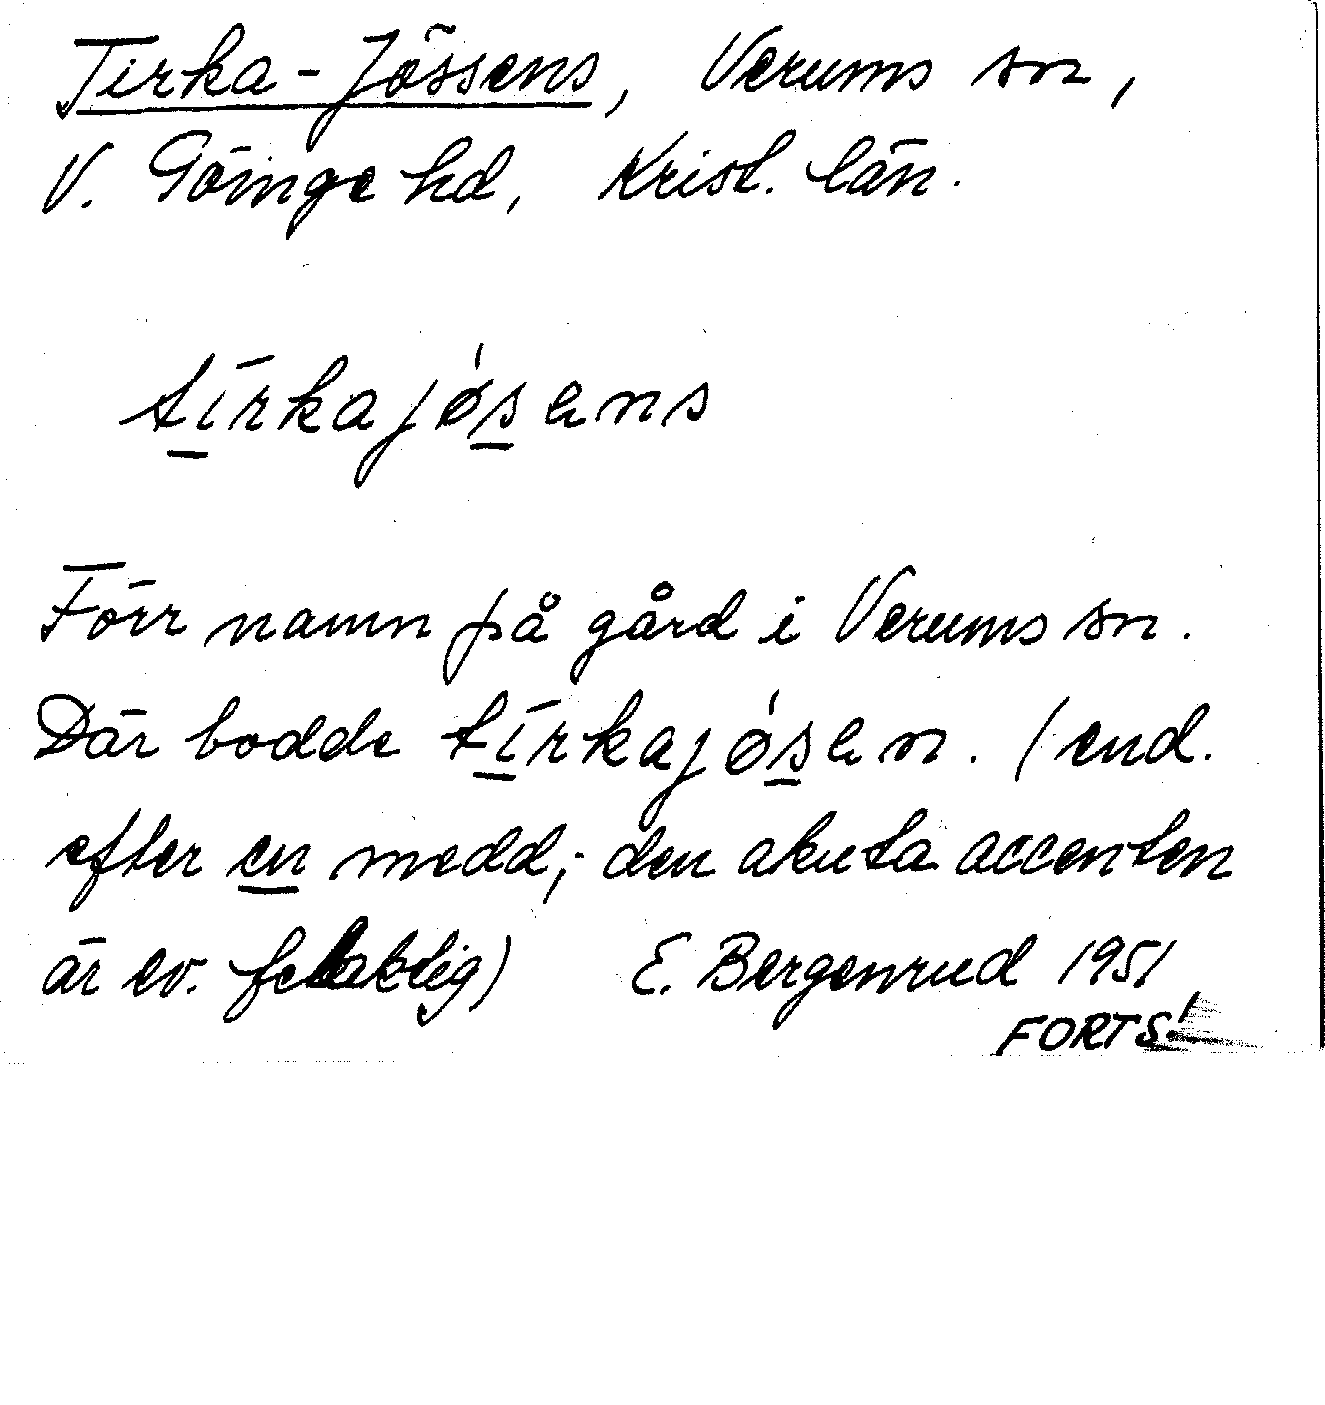 Tirka-Jössens, Verums sn,
V. Göinge hd, Krist. län.
tirkajøsens
Förr namn på gård i Verums sn.
Där bodde tirkajøsen. (end.
efter en medd; den akuta accenten
är ev. felaktig) E. Bergenrud 1951
FORTS!